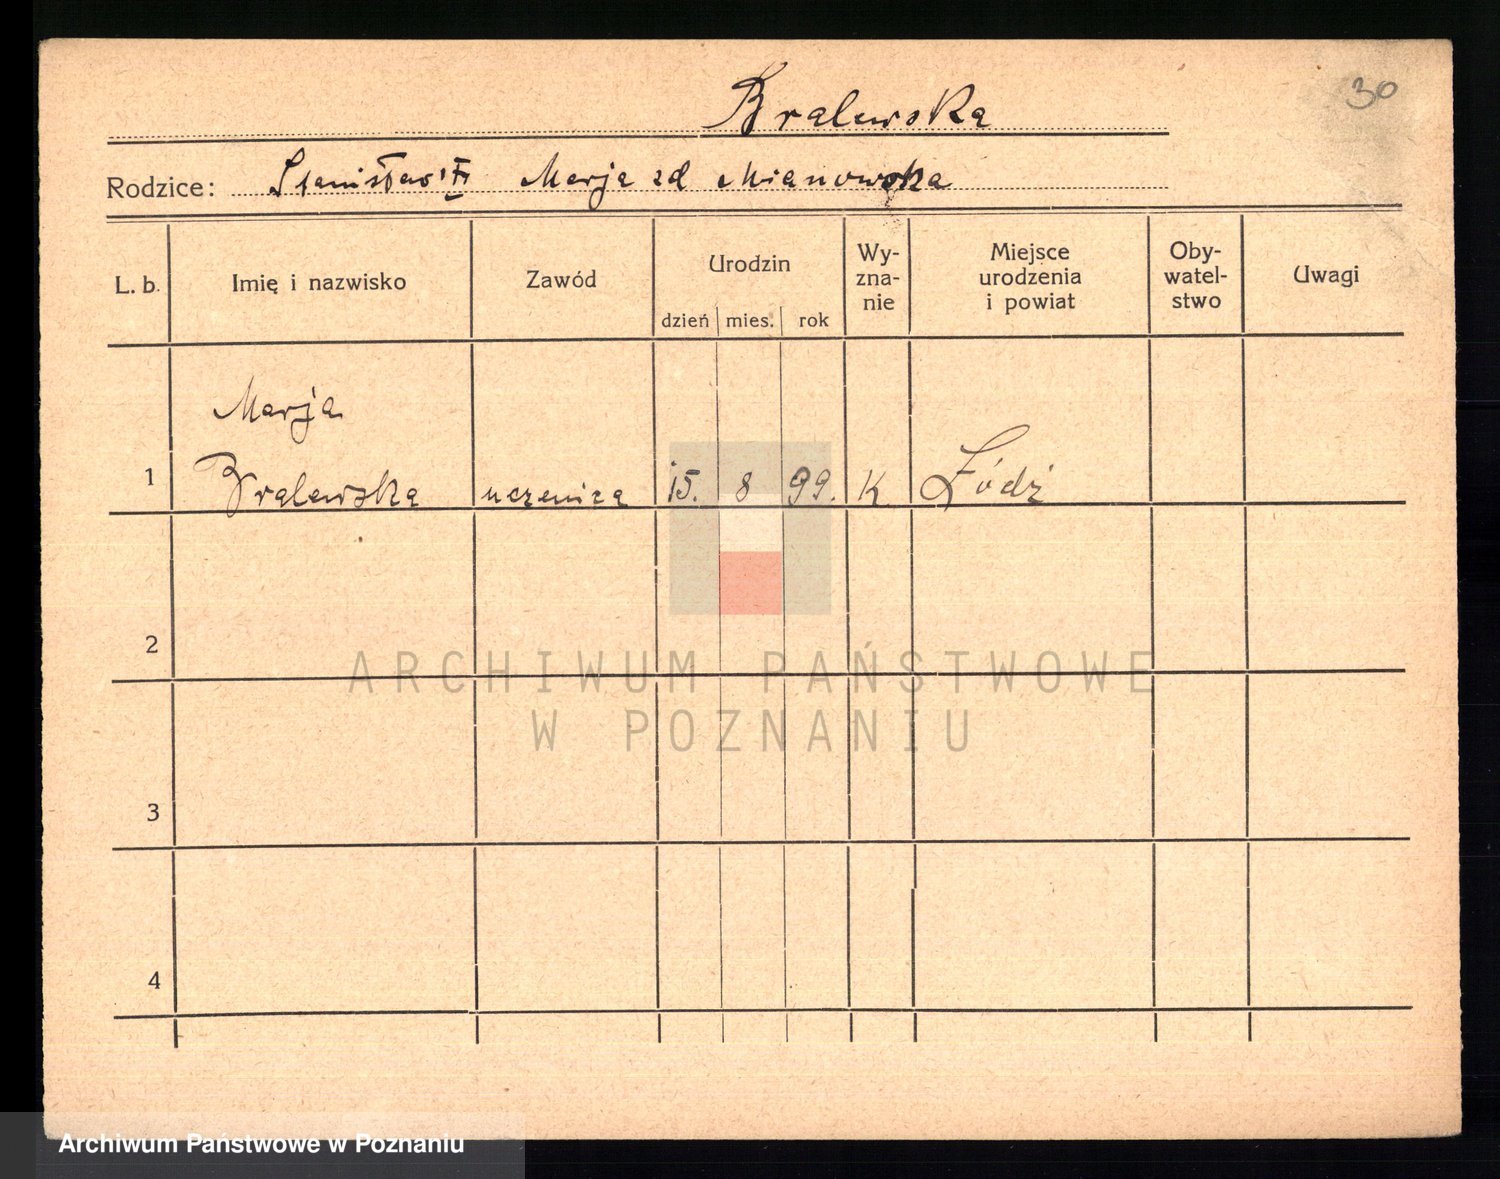 30
Bralewska
Rodzice: Stanisław i Marja zd Mianowska
L. b. Imię i nazwisko Zawód Urodzin Wy- Miejsce Oby- Uwagi
zna- urodzenia watel-
nie i powiat stwo
dzień mies. rok
Marja
1 Bralewska uczenica 15. 8 99. K Łódź
2
ARCHIWUM PAŃSTWOWE
W POZNANIU
3
4
Archiwum Państwowe w Poznaniu